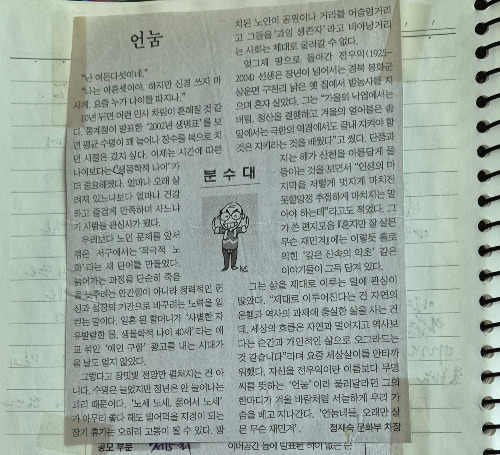 언눔
“난 여든다섯이네.”
“나는 아흔셋이야. 하지만 신경 쓰지 마
시게. 요즘 누가 나이를 따지나.”
10년 뒤면 이런 인사 차림이 흔해질 것 같
다. 통계청이 발표한 ‘2002년 생명표’를 보
면 평균 수명이 꽤 늘어나 장수를 복으로 치
던 시절은 갔지 싶다. 이제는 시간에 따른
나이보다는 ‘생물학적 나이’가
더 중요해졌다. 얼마나 오래 살
려져 있느냐보다 얼마나 건강
하고 즐겁게 만족하며 사느냐
가 사람들 관심사가 됐다.
우리보다 노인 문제를 앞서
겪은 서구에서는 ‘적극적 노
화’라는 새 단어를 만들었다.
늙어가는 과정을 단순히 죽음
을 늦추려는 안간힘이 아니라 정력적인 헌
신과 성장의 기간으로 바꾸려는 노력을 일
컫는 말이다. 일흔 된 할머니가 ‘사별한 자
유발랄한 몸, 생물학적 나이 40세’라는 애
교 섞인 ‘애인 구함’ 광고를 내는 시대가
올 날도 멀지 않았다.
그렇다고 장밋빛 전망만 펼쳐지는 건 아
니다. 수명은 늘었지만 정년은 안 늘어나는
괴리 때문이다. ‘노세 노세, 젊어서 노세’
가 아무리 좋다 해도 밀어떡을 지경이 되는
장기 휴가는 오히려 고통이 될 수 있다. 방
분수대
치된 노인이 공원이나 거리를 어슬렁거리
고 그들을 ‘과잉 생존자’라고 비아냥거리
는 사회는 제대로 굴러갈 수 없다.
엊그제 땅으로 돌아간 전우익(1925~
2004) 선생은 장년이 넘어서는 경북 봉화군
상운면 구천리 낡은 옛 집에서 밭농사를 지
으며 혼자 살았다. 그는 “가을의 낙엽에서는
버림, 청산을 결행하고 겨울의 얼어붙은 솔
앞에서는 극한의 역경에서도 끝내 지켜야 할
것은 지키라는 것을 배웠다”고 썼다. 단풍과
지는 해가 산천을 아름답게 물
들이는 것을 보면서 “인생의 마
지막을 저렇게 멋지게 마치진
못할망정 추접하게 마치지는 말
아야 하는데”라고도 적었다. 그
가 쓴 편지모음 『혼자만 잘 살믄
무슨 재민겨』에는 이렇듯 홀로
익힌 ‘깊은 산속의 약초’ 같은
이야기들이 그득 담겨 있다.
그는 삶을 제대로 이루는 일에 관심이
많았다. “제대로 이루어진다는 건 자연의
운행과 역사의 과제에 충실한 삶을 사는 건
데, 세상의 흐름은 자연과 멀어지고 역사보
다는 순간과 개인적인 삶으로 오그라드는
것 같습니다”라며 요즘 세상살이를 안타까
워했다. 자신을 전우익이란 이름보다 무명
씨를 뜻하는 ‘언눔’이라 불러달라던 그의
한마디가 겨울 바람처럼 서늘하게 우리 가
슴을 베고 지나간다. ‘언눔네들, 오래만 살
믄 무슨 재민겨’.
정재숙 문화부 차장
공모 부문